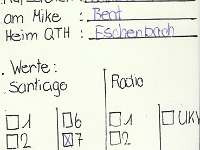 am Mike : Beat
Heim QTH : Eschenbach
. Werte:
Santiago Radio
1 6 1 UKW
2 7 2